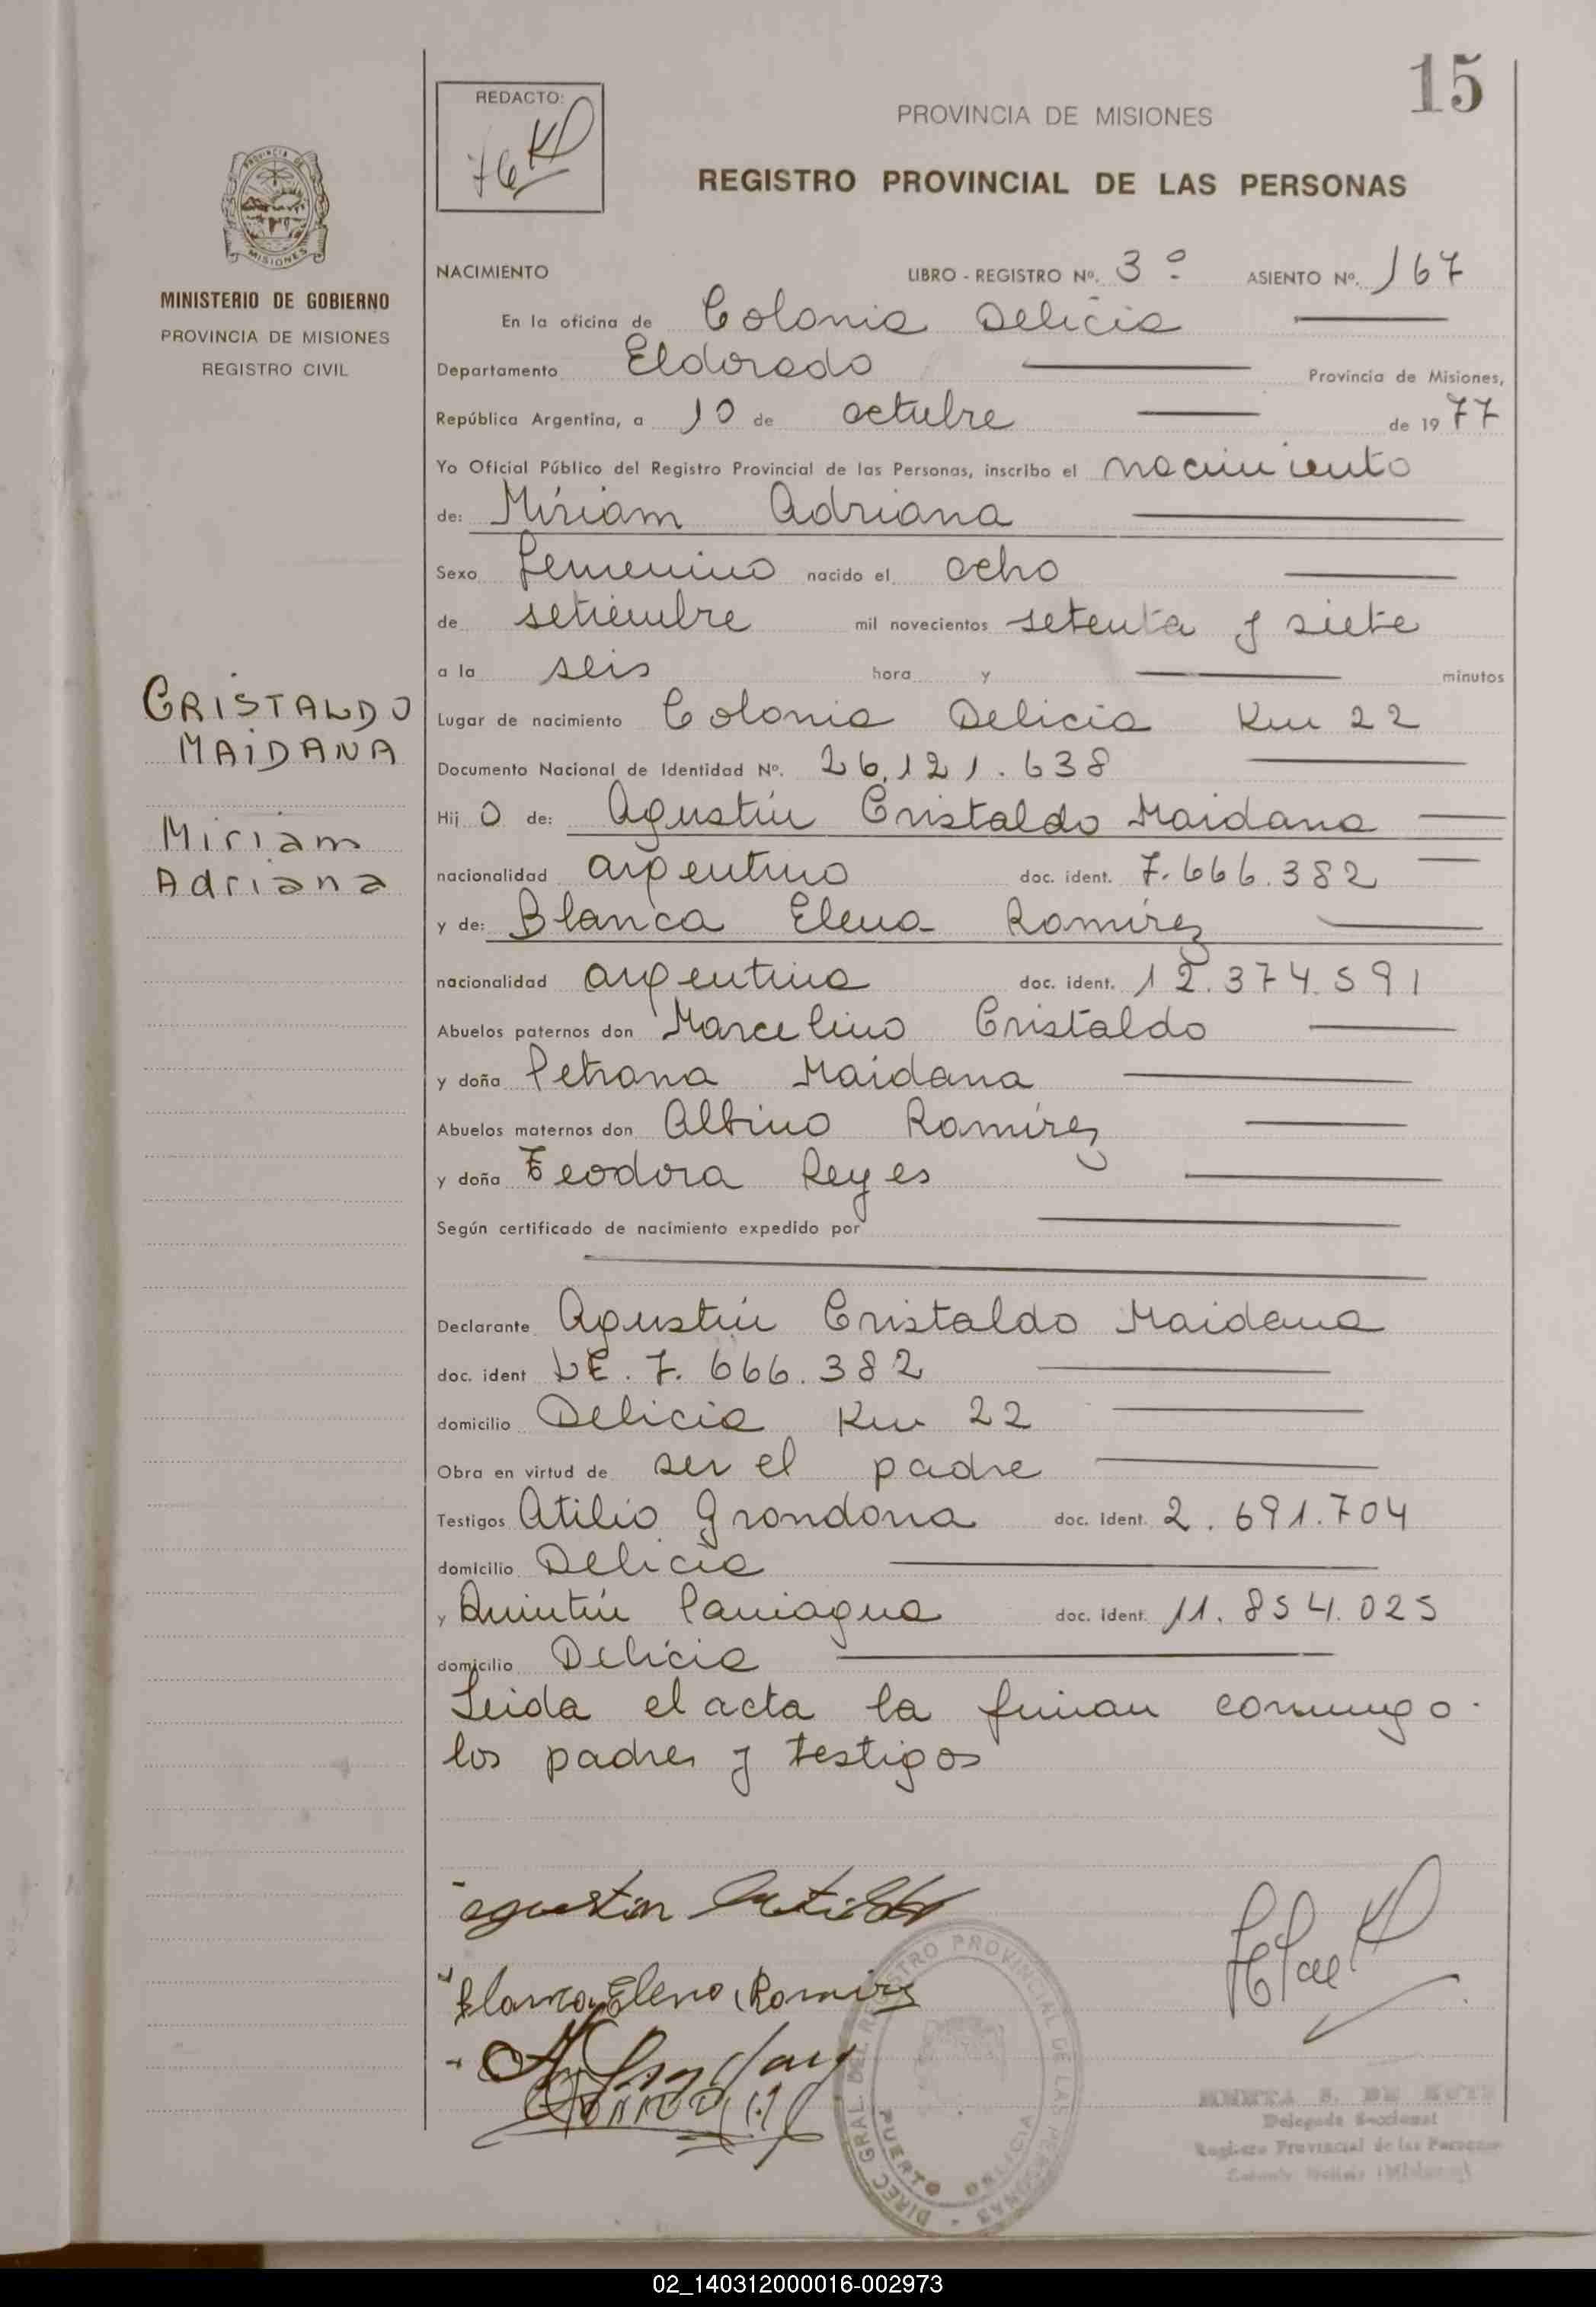 15
REDACTO:
PROVINCIA DE MISIONES
REGISTRO PROVINCIAL DE LAS PERSONAS
PROVINCIA DE
MISIONES
MINISTERIO DE GOBIERNO
PROVINCIA DE MISIONES
REGISTRO CIVIL
NACIMIENTO LIBRO - REGISTRO Nº. 3º ASIENTO Nº. 167
En la oficina de Colonia Delicia
Departamento Eldorado Provincia de Misiones,
República Argentina, a 10 de octubre de 1977
Yo Oficial Público del Registro Provincial de las Personas, inscribo el nacimiento
de: Miriam Adriana
Sexo femenino nacido el ocho
de setiembre mil novecientos setenta y siete
a la seis hora y minutos
CRISTALDO
MAIDANA
Miriam
Adriana
Lugar de nacimiento Colonia Delicia Km 22
Documento Nacional de Identidad Nº. 26.121.638
Hij o de: Agustín Cristaldo Maidana
nacionalidad argentino doc. ident. 7.666.382
y de: Blanca Elena Ramírez
nacionalidad argentina doc. ident. 12.374.591
Abuelos paternos don Marcelino Cristaldo
y doña Petrona Maidana
Abuelos maternos don Albino Ramírez
y doña Teodora Reyes
Según certificado de nacimiento expedido por
Declarante Agustín Cristaldo Maidana
doc. ident LE. 7.666.382
domicilio Delicia Km 22
Obra en virtud de ser el padre
Testigos Atilio Grondona doc. ident. 2.691.704
domicilio Delicia
y Quintín Paniagua doc. ident. 11.854.025
domicilio Delicia
Leida el acta la firman conmigo
los padres y testigos
agustin
Blanca Elena Ramirez
DIREC. GRAL. DEL REGISTRO PROVINCIAL DE LAS PERSONAS
PUERTO DELICIA
Delegada Seccional
Registro Provincial de las Personas
02_140312000016-002973